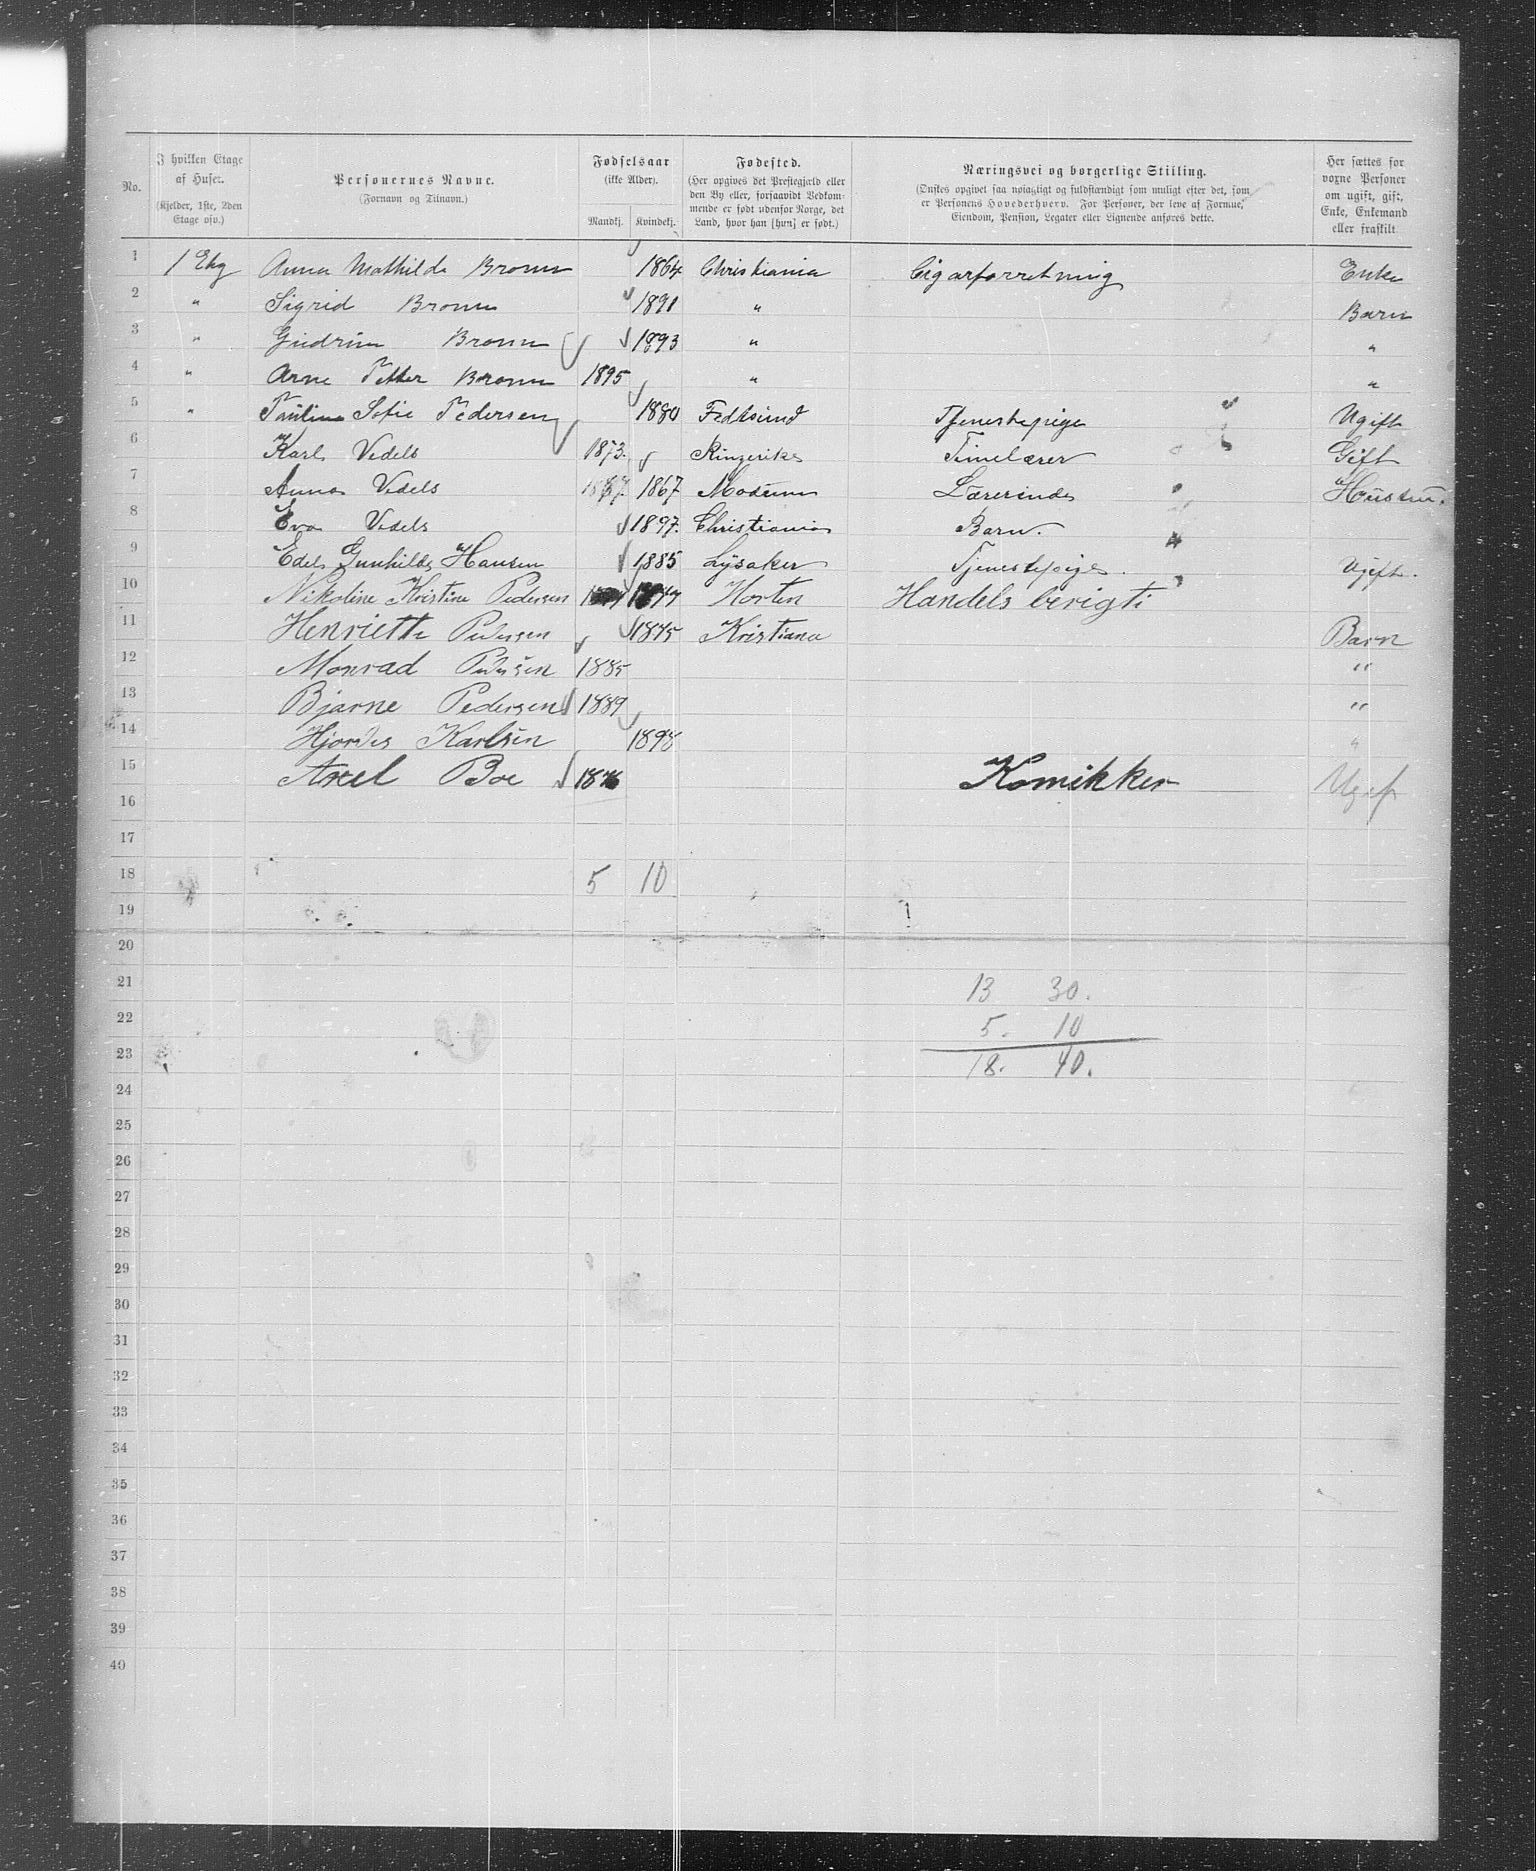 No. | I hvilken Etage af Huset. (Kjelder, 1ste, 2den Etage osv.) | Personernes Navne. (Fornavn og Tilnavn.) | Fødselsaar (ikke Alder). Mandkj. | Kvindekj. | Fødested. (Her opgives det Prestegjæld eller den By eller, forsaavidt Vedkommende er født udenfor Norge, det Land, hvor han [hun] er født.) | Næringsvei og borgerlige Stilling. (Ønskes opgivet saa nøiagtigt og fuldstændigt som muligt efter det, som er Personens Hovederhverv. For Personer, der leve af Formue, Eiendom, Pension, Legater eller Lignende anføres dette. | Her sættes for voxne Personer om ugift, gift, Enke, Enkemand eller fraskilt
1 | 1 Etg | Anna Mathilde Bronn | | 1864 | Christiania | Cigarforretning | Enke
2 | " | Sigrid Bronn | | 1891 | " | | Barn
3 | " | Gudrun Bronn | | 1893 | " | | "
4 | " | Arne Petter Bronn | 1895 | | " | | "
5 | " | Pauline Sofie Pedersen | | 1880 | | Tjenestepige | Ugift
6 | | Karl Vedels | 1873. | | Ringerike | Timelærer | Gift
7 | | Anna Vedels | | 1867 | Modum | Lærerinde | Hustru.
8 | | Eva Vedels | | 1897. | Christiania | Barn.
9 | | Edel Gunhilde Hansen | | 1885 | Lysaker | Tjenestepige. | Ugift.
10 | | Nikoline Kristine Pedersen | | | Horten | Handels berigti
11 | | Henriette Pedersen | | 1875 | Kristiana | | Barn
12 | | Monrad Pedersen | 1885 | | | | "
13 | | Bjarne Pedersen | 1889 | | | | "
14 | | Hjordis Karlsen | | 1898 | | | "
15 | | Axel Boe | 1876 | | | Komikker | Ugift
16
17
18 | | | 5 | 10
19
20
21 | 13 30.
22 | 5. 10
23 | 18. 40.
24
25
26
27
28
29
30
31
32
33
34
35
36
37
38
39
40